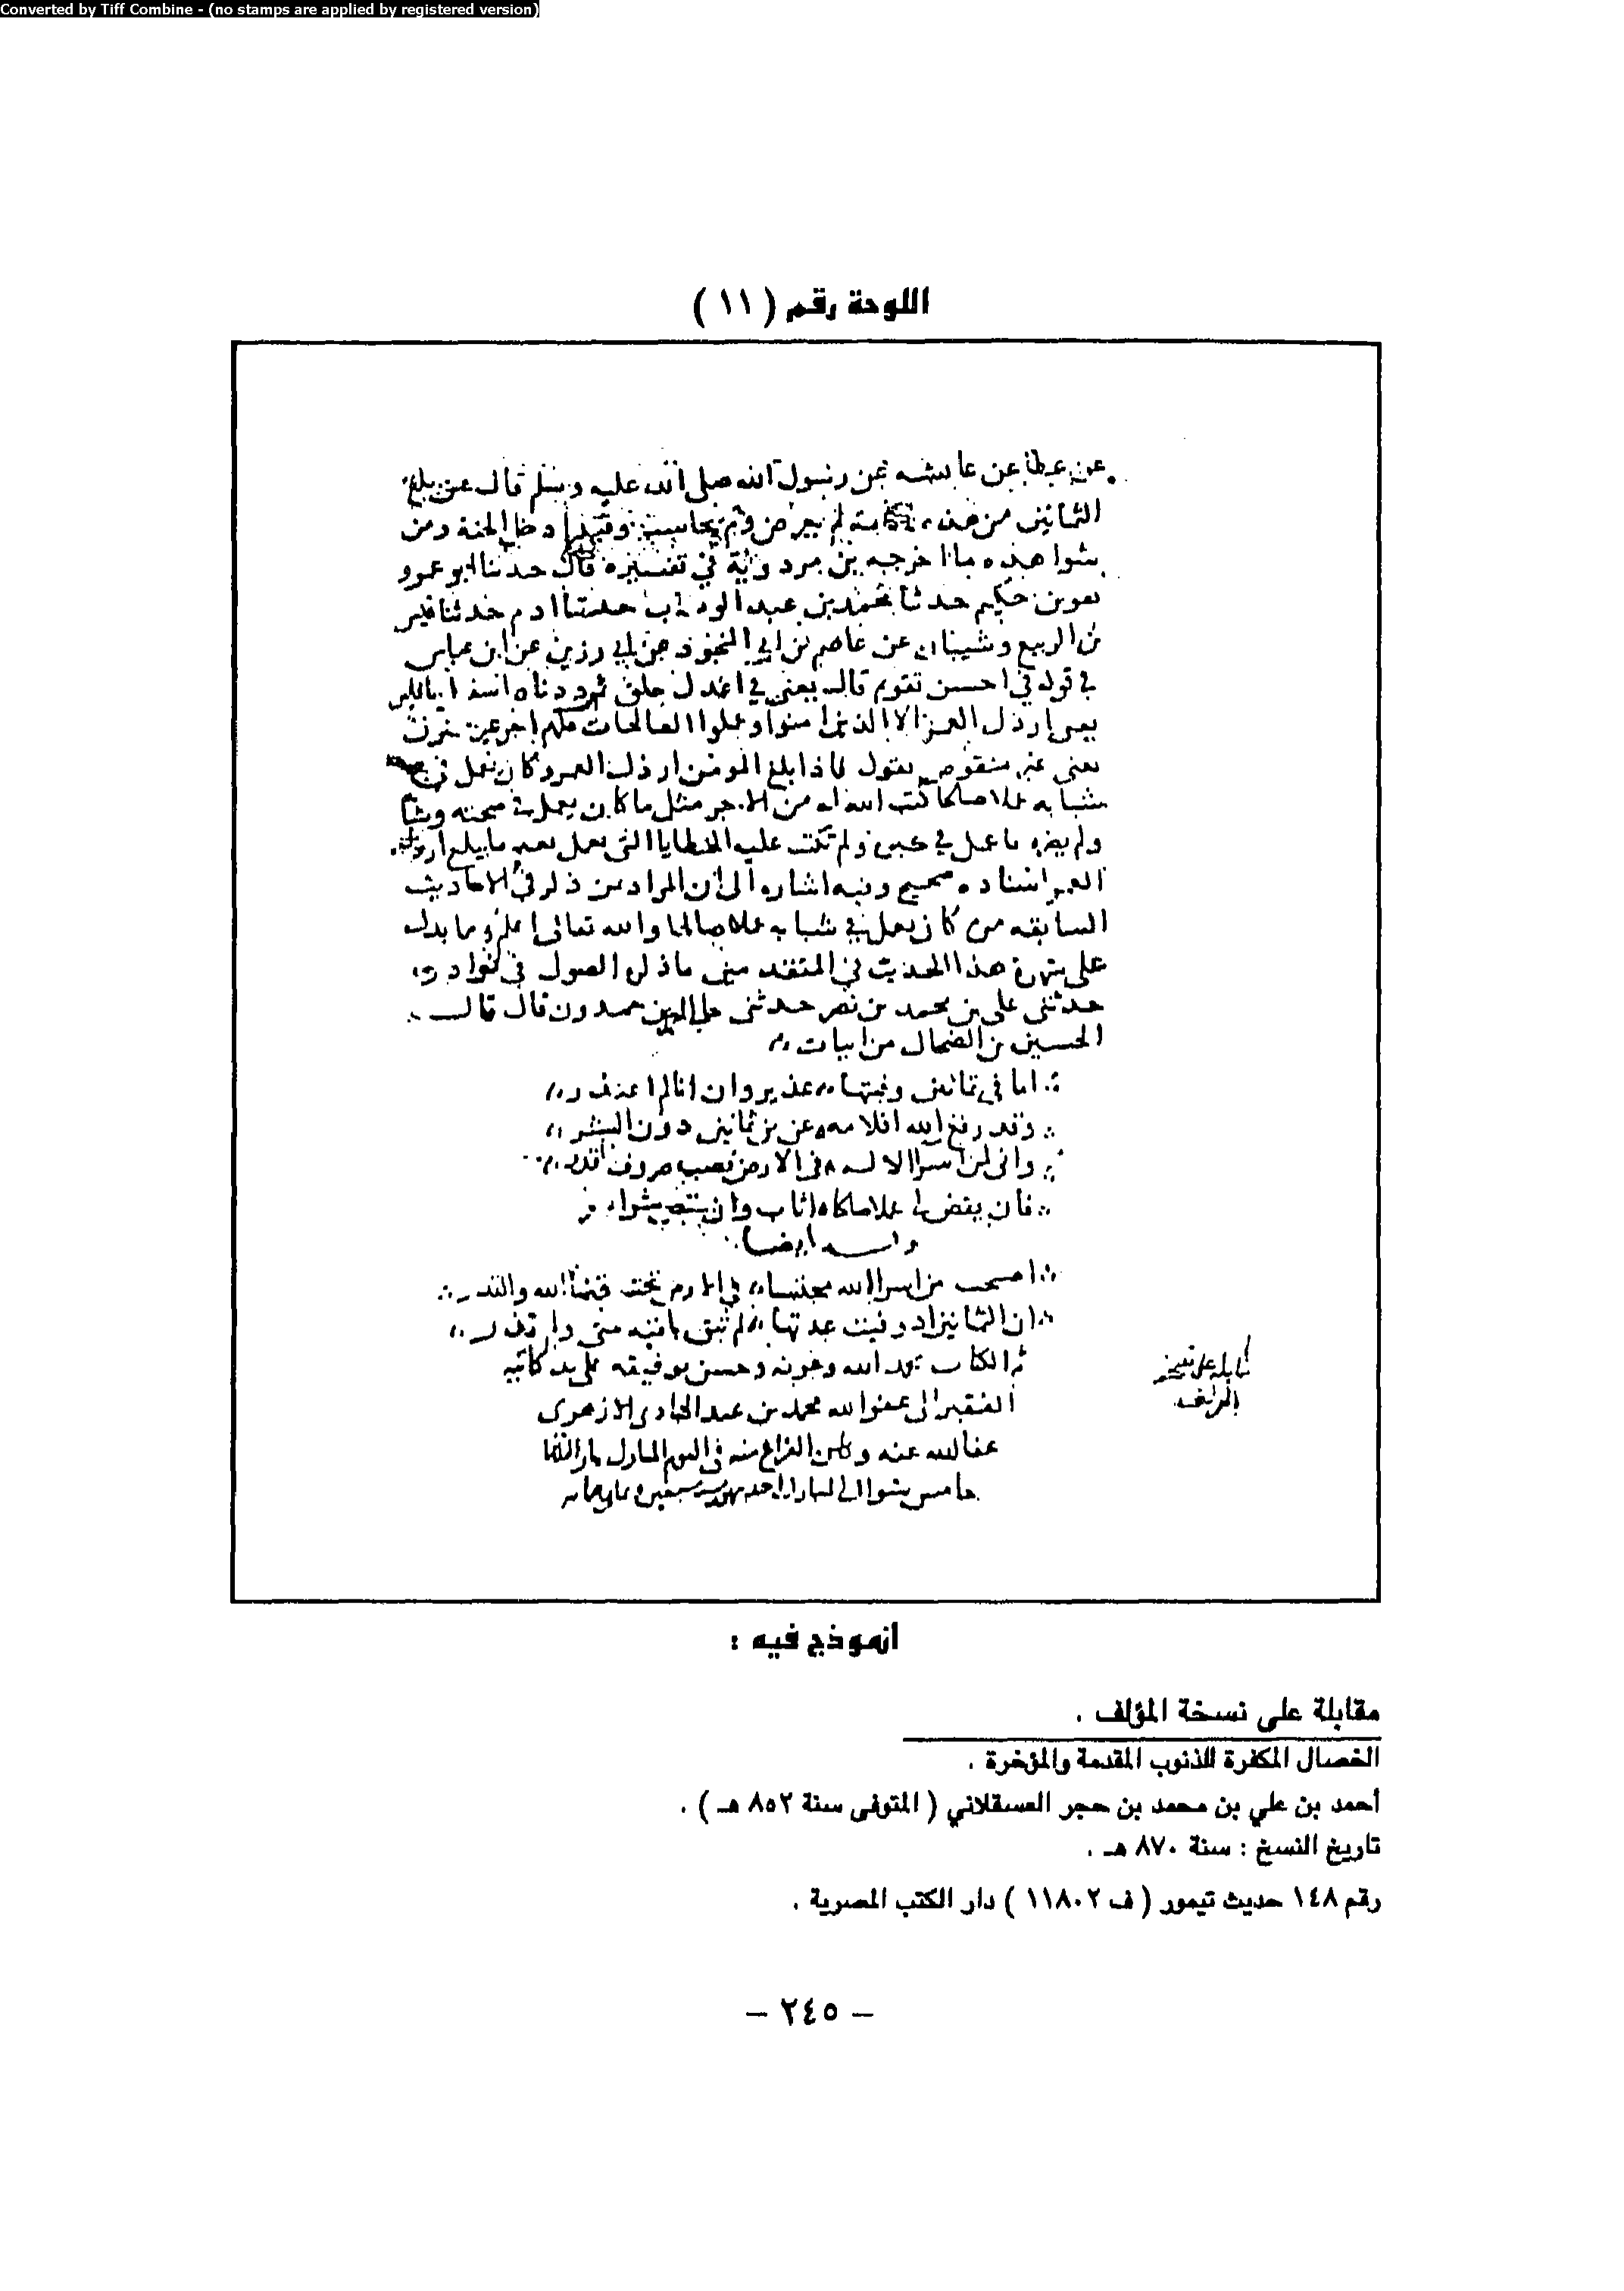 Converted by Tiff Combine - (no stamps are applied by registered version)
اللوحة رقم ( ١١ )
عن عطا عن عايشه عن رسول الله صلى الله عليه وسلم قال من بلغ
الثمانين من هذه لم يعرض ولم يحاسب وقيل ادخل الجنة ومن
شواهده ما اخرجه بن مردوية في تفسيره قال حدثنا ابو عمرو
حكيم حدثنا محمد بن عبد الوهاب حدثنا ادم حدثنا قيس
بن الربيع وشيبان عن عاصم بن ابي النجود عن ابي رزين عن ابن عباس
في قوله في احسن تقويم قال يعني في اعدل خلق ثم رددناه اسفل
ارذل العمر الا الذين امنوا وعملوا الصالحات فلهم اجر غير ممنون
يعني غير منقوص يقول فاذا بلغ المومن ارذل العمر وكان يعمل في
شبابه عملا صالحا كتب الله له من الاجر مثل ما كان يعمل في صحته
ولم يضره ما عمل في كبره ولم تكتب عليه الخطايا التي يعمل بعد ما يبلغ ارذل
العمر اسناده صحيح وفيه اشاره الى ان المراد من ذكر في الاحاديث
السابقه من كان يعمل في شبابه عملا صالحا والله تعالى اعلم ومما يدل
على هذا الحديث في المتقدمين ما ذكره الصولي في نوادره
حدثني علي بن محمد بن نصر حدثني حمدون قال قال
الحسين بن الضحاك من ابيات
اما في ثمانين وفيتها عذير وان انا لم اعتذر
وقد رفع الله اقلامه عن بن ثمانين دون البشر
واني لمن اسرا الاله في الارض نصب صروف القدر
فان يقض لي عملا صالحا اثاب وان
وله ايضا
اصبحت من اسرا الله محتبسا في الارض تحت قضا الله والقدر
ان الثمانين اذ وفيت عدتها لم تبق باقيه مني ولم تذر
تم الكتاب بحمد الله وعونه وحسن توفيقه على يد كاتبه
الفقير الى عفو الله محمد بن عبد الهادي الازهرى
عفا الله عنه وكان الفراغ منه في اليوم المبارك
خامس شوال المبارك سنة سبعين وثمانمايه
قابله على نسخة
المولف
انموذج فيه :
مقابلة على نسخة المؤلف .
الخصال المكفرة للذنوب المقدمة والمؤخرة .
أحمد بن علي بن محمد بن حجر العسقلاني ( المتوفى سنة ٨٥٢ هـ ) .
تاريخ النسخ : سنة ٨٧٠ هـ .
رقم ١٤٨ حديث تيمور ( ف ١١٨٠٢ ) دار الكتب المصرية .
– ٢٤٥ –